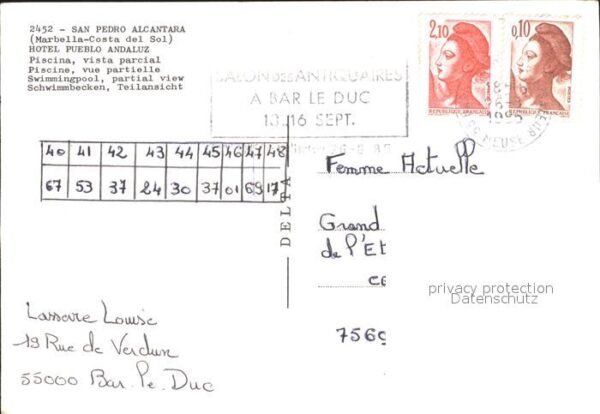 2452 - SAN PEDRO ALCANTARA
(Marbella-Costa del Sol)
HOTEL PUEBLO ANDALUZ
Piscina, vista parcial
Piscine, vue partielle
Swimmingpool, partial view
Schwimmbecken, Teilansicht
2,10
0,10
REPUBLIQUE FRANÇAISE
REPUBLIQUE FRANÇAISE
SALON DES ANTIQUAIRES
A BAR LE DUC
13.16 SEPT.
MEUSE
40 41 42 43 44 45 46 47 48
67 53 37 24 30 37 01 69 17
DELTA
Femme Actuelle
Grand
de l'Et
CE
7569
privacy protection
Datenschutz
Lassare Louise
19 Rue de Verdun
55000 Bar. Le. Duc